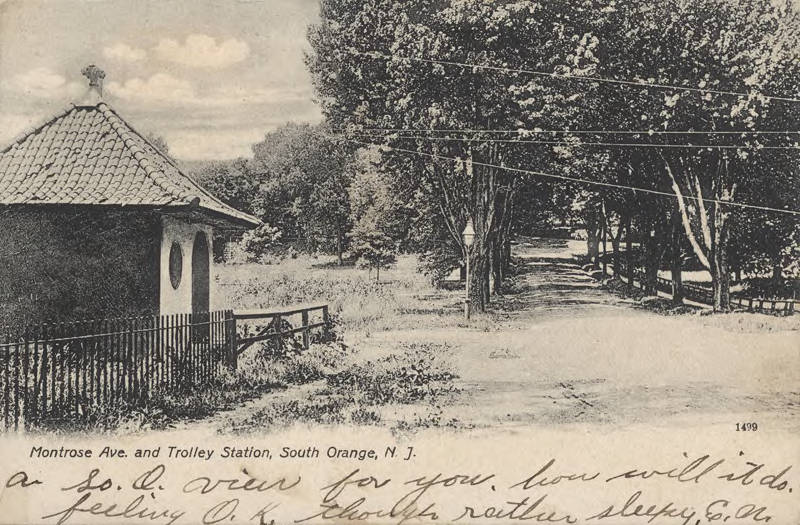 1499
Montrose Ave. and Trolley Station, South Orange, N. J.
a So. O. view for you. how will it do.
feeling O.K. though rather sleepy. E. N.